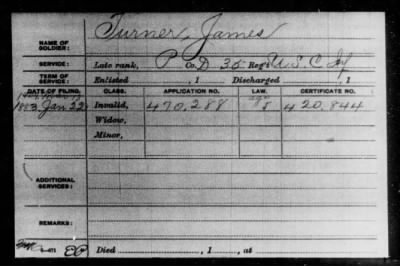 NAME OF SOLDIER: Turner, James
SERVICE: Late rank, P Co. D 35 Reg't U.S.C. Inf
TERM OF SERVICE: Enlisted , 1 Discharged , 1
DATE OF FILING. CLASS. APPLICATION NO. LAW. CERTIFICATE NO.
1883 Jan 22 Invalid, 470,288 420,844
Widow,
Minor,
ADDITIONAL SERVICES:
REMARKS:
Died , 1 , at